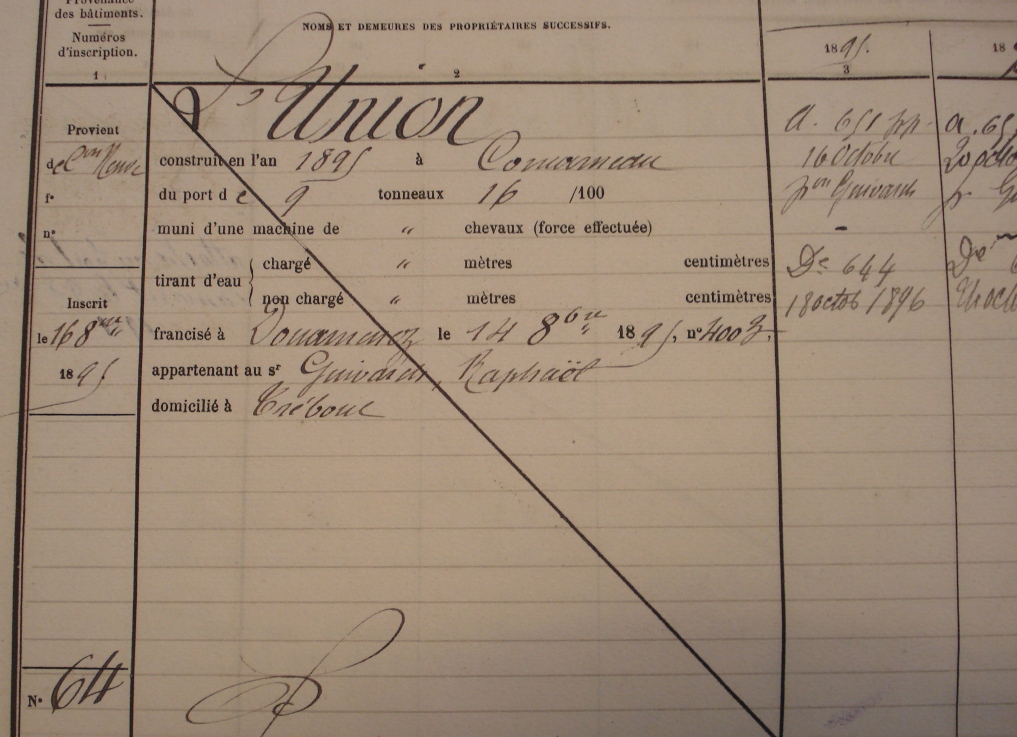 Provenance
des bâtiments.
Numéros
d'inscription.
1
NOMS ET DEMEURES DES PROPRIÉTAIRES SUCCESSIFS.
2
1895.
3
18
L'Union
Provient
de
construit en l'an 1895 à Concarneau
du port de 9 tonneaux 16 /100
f°
n°
muni d'une machine de " chevaux (force effectuée)
tirant d'eau
chargé " mètres centimètres
non chargé " mètres centimètres
Inscrit
le 16 8bre
1895
francisé à Douarnenez le 14 8bre 1895, n° 4003.
appartenant au sr Guivarch, Raphaël
domicilié à Tréboul
N° 64
a. 651
16 Octobre
pon Guivarch
De 644
18 octob 1896
a. 65
20 octo
p. G
De